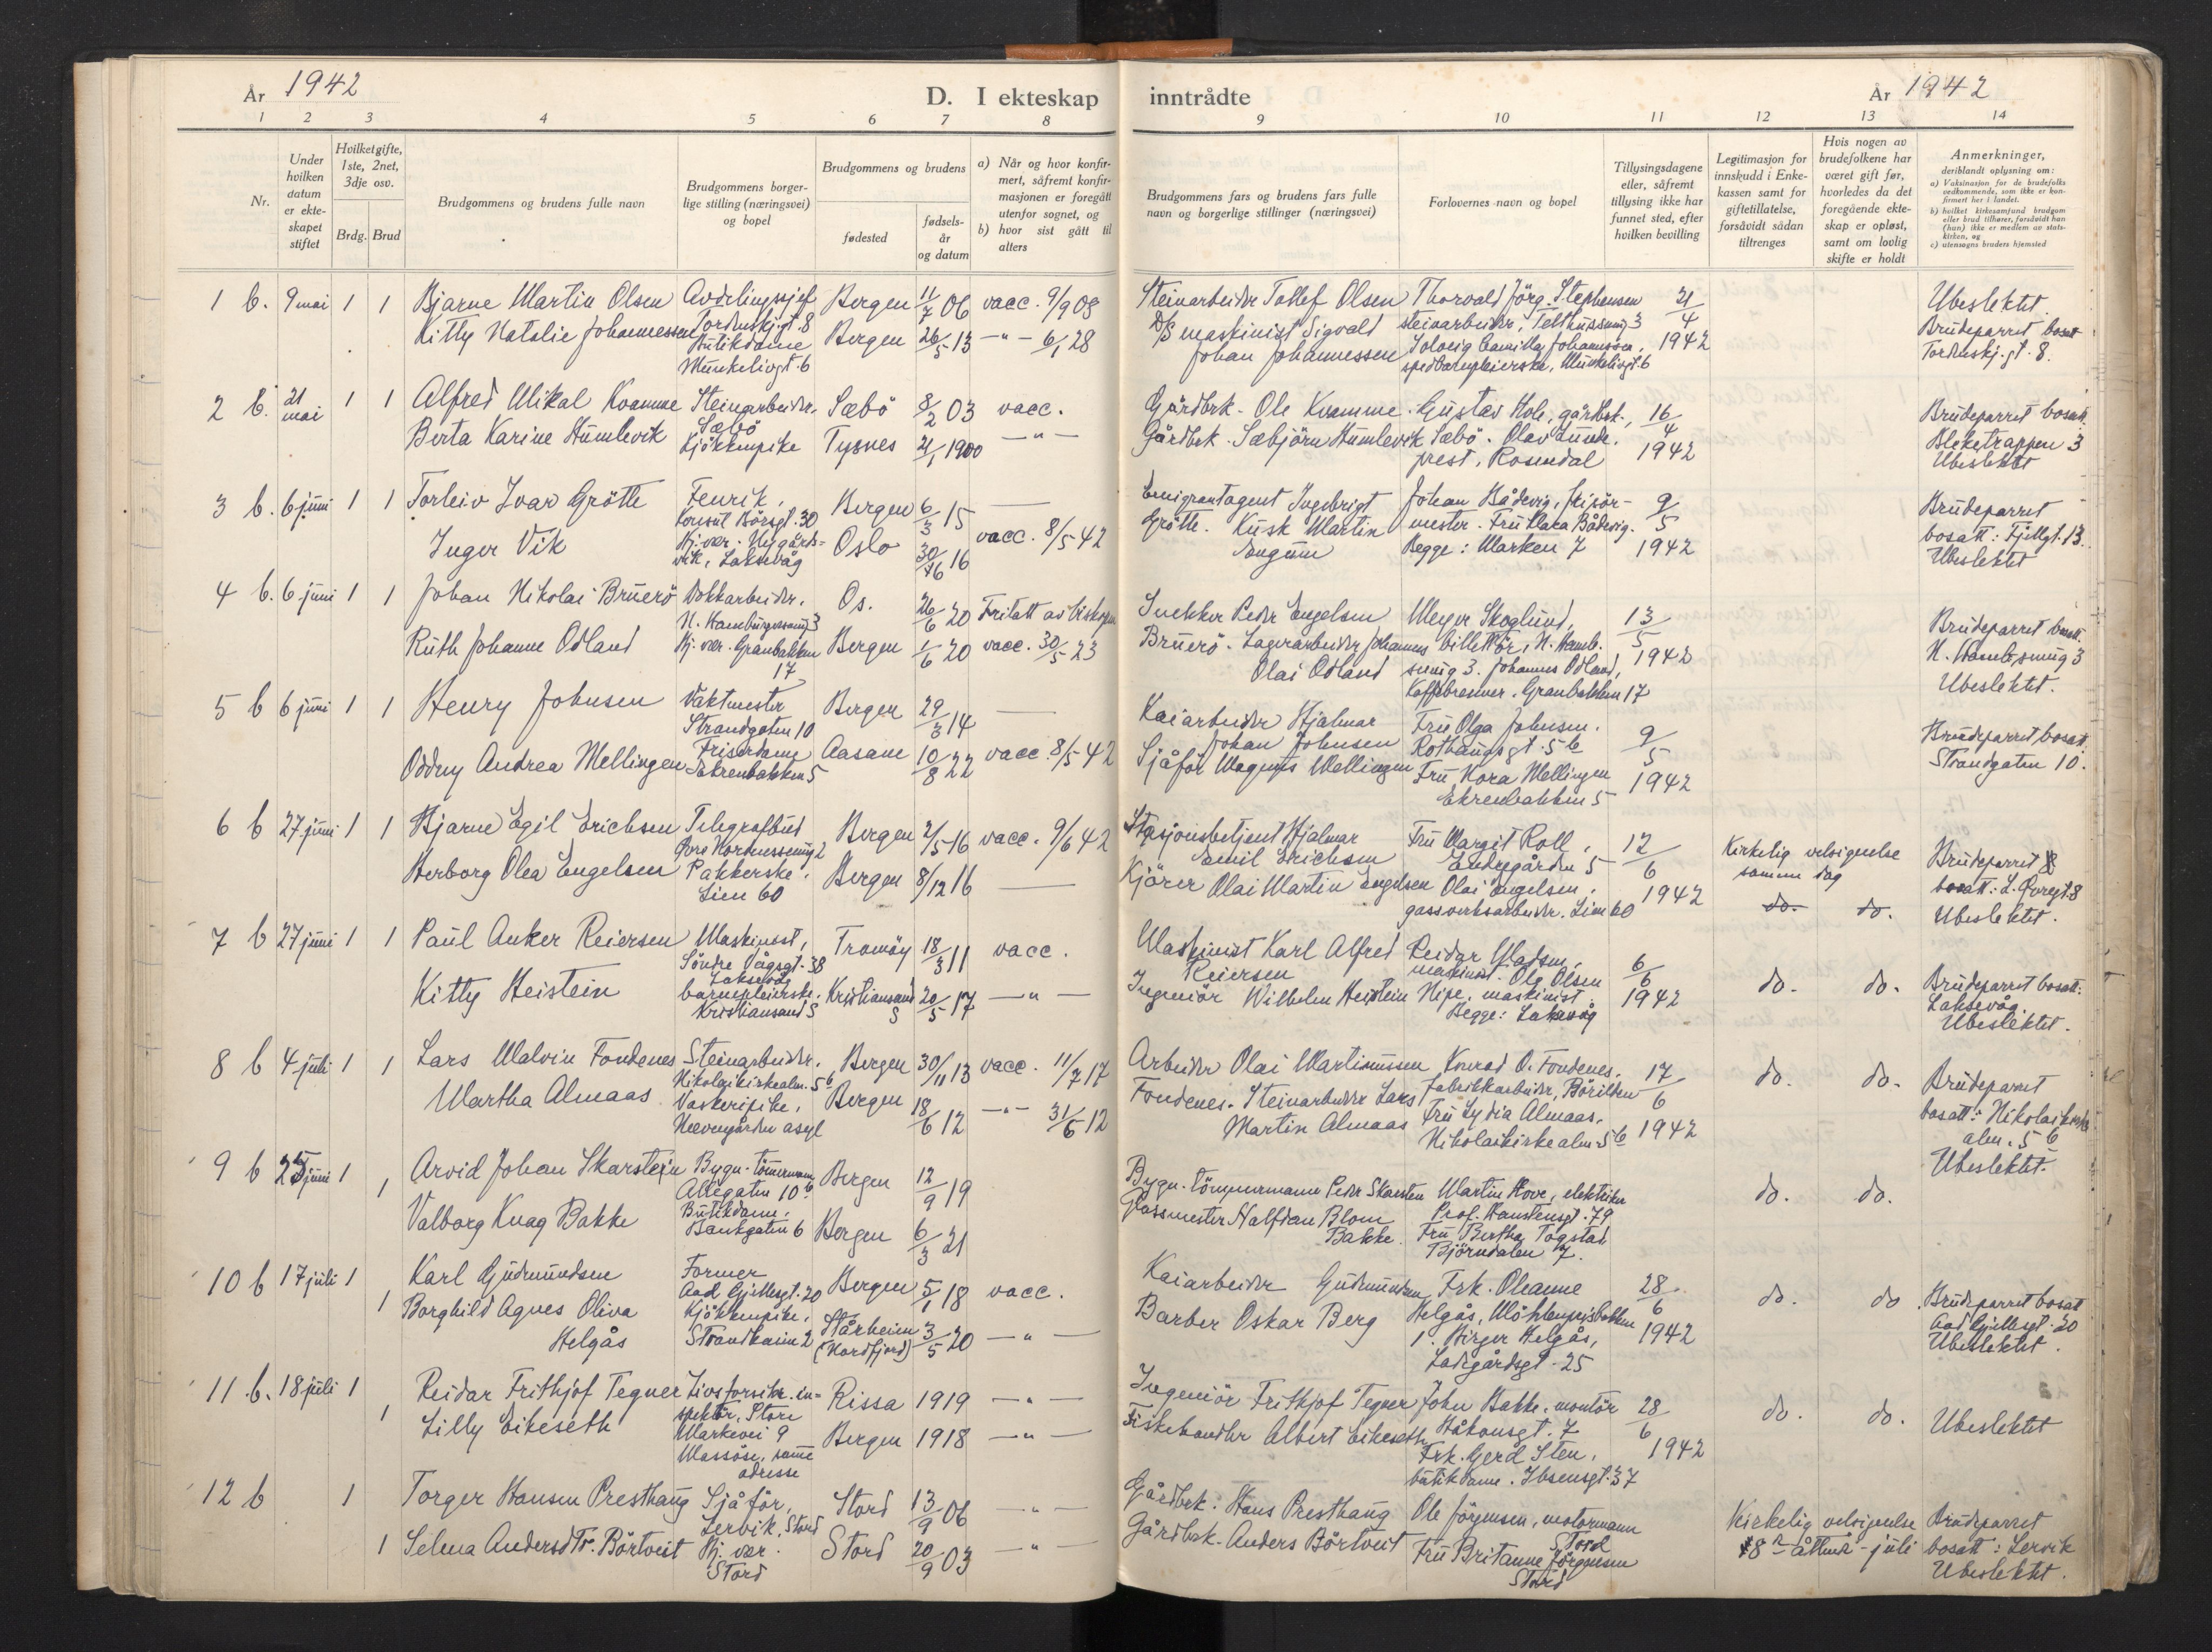 År 1942
D. I ekteskap
inntrådte
År 1942
1 2 3 4 5 6 7 8
9 10 11 12 13 14
Nr.
Under hvilken datum er ekteskapet stiftet
Hvilket gifte, 1ste, 2net, 3dje osv.
Brdg. Brud
Brudgommens og brudens fulle navn
Brudgommens borgerlige stilling (næringsvei) og bopel
Brudgommens og brudens
fødested
fødselsår og datum
a) Når og hvor konfirmert, såfremt konfirmasjonen er foregått utenfor sognet, og
b) hvor sist gått til alters
Brudgommens fars og brudens fars fulle navn og borgerlige stillinger (næringsvei)
Forlovernes navn og bopel
Tillysingsdagene eller, såfremt tillysing ikke har funnet sted, efter hvilken bevilling
Legitimasjon for innskudd i Enkekassen samt for giftetillatelse, forsåvidt sådan tiltrenges
Hvis nogen av brudefolkene har været gift før, hvorledes da det foregående ekteskap er opløst, samt om lovlig skifte er holdt
Anmerkninger, deriblandt oplysning om:
a) Vaksinasjon for de brudefolks vedkommende, som ikke er konfirmert her i landet.
b) hvilket kirkesamfund brudgom eller brud tilhører, forsåvidt han (hun) ikke er medlem av statskirken, og
c) utensogns bruders hjemsted
1 b. 9 mai 1 1 Bjarne Martin Olsen Avdelingssjef Bergen 11/7 06 vacc. 9/9 08
Tordenskj.gt. 8
Kitty Natalie Johannessen Butikdame Bergen 26/5 13 -"- 6/1 28
Munkelivgt. 6
Steinarbeider Tollef Olsen Thorvald Jörg. Stephensen 21/4 Ubeslektet.
D/S maskinist Sigvald steinarbeider, Telthussmug 3 Brudeparret bosatt
Johan Johannessen Solveig Camilla Johannessen, 1942 Tordenskj.gt. 8.
spedbarnpleierske, Munkelivgt. 6
2 b. 21 mai 1 1 Alfred Mikal Kvamme Steinarbeider, Sæbö 8/2 03 vacc.
Sæbö
Berta Karine Humlevik Kjökkenpike Tysnes 21/1 1900 -"-
Gårdbrk. Ole Kvamme. Gustav Hole, gårdbrk., 16/4 Brudeparret bosatt
Gårdbrk. Sæbjörn Humlevik Sæbö. Olav Lunde, 1942 Bleketrappen 3
prest, Rosendal Ubeslektet
3 b. 6 juni 1 1 Torleiv Ivar Grötte Fenrik, Bergen 6/3 15 —
Konsul Börsgt. 30
Inger Vik Hj. vær. Nygårdsvik, Laksevåg Oslo 30/ 16 vacc. 8/5 42
Emigrantagent Ingebrigt Johan Bådevig, frisör- 9/5 Brudeparret
Grötte. Kusk Martin mester. Fru Klara Bådevig. bosatt: Fjellgt. 13.
Engum Begge: Marken 7 1942 Ubeslektet
4 b. 6 juni 1 1 Johan Nikolai Bruerö Dokkarbeider. Os. 26/6 20 Fritatt av biskopen
N. Hamburgersmug 3
Ruth Johanne Odland Hj. vær. Granbakken 17 Bergen 1/6 20 vacc. 30/5 23
Snekker Peder Engelsen Meyer Skoglund, 13/5 Brudeparret bosatt.
Bruerö. Lagerarbeider Johannes billettör, N. Hamb. 1942 N. Hamb. smug 3
Olai Odland smug 3. Johannes Odland, Ubeslektet.
Kaffebrenner. Granbakken 17
5 b 6 juni 1 1 Henry Johnsen Vaktmester Bergen 29/3 14 —
Strandgaten 10
Oddny Andrea Mellingen Friserdame Aasane 10/8 22 vacc. 8/5 42
Ekrenbakken 5
Kaiarbeider Hjalmar Fru Olga Johnsen. 9/5 Brudeparret bosatt.
Johan Johnsen Rothaugsgt. 5 b Strandgaten 10.
Sjåför Magnus Mellingen Fru Kora Mellingen 1942
Ekrenbakken 5
6 b 27 juni 1 1 Bjarne Egil Erichsen Telegrafbud Bergen 2/5 16 vacc. 9/6 42
Övre Nordnessmug 2
Herborg Olea Engelsen Pakkerske. Bergen 8/12 16 —
Lien 60
Stasjonsbetjent Hjalmar Fru Margit Roll, 12/6 Kirkelig velsignelse Brudeparret
Emil Erichsen Endregården 5 samme dag bosatt: L. Øvregt. 8
Kjörer Olai Martin Engelsen Olai Engelsen, 1942 do. do. Ubeslektet.
gassverksarbeider. Lien 60
7 b 27 juni 1 1 Paul Anker Reiersen Maskinist, Tromöy 18/3 11 vacc.
Söndre Vågsgt. 38 Laksevåg
Kitty Heistein barnepleierske. Kristiansand S 20/5 17 -"-
Kristiansand S
Maskinist Karl Alfred Reidar Madsen, 6/6
Reiersen maskinist. Ole Olsen do. do. Brudeparret bosatt:
Ingeniör Wilhelm Heistein Nipe, maskinist. 1942 Laksevåg.
Begge: Laksevåg Ubeslektet.
8 b 4 juli 1 1 Lars Malvin Fondenes Steinarbeider. Bergen 30/11 13 vacc. 11/7 17
Nikolaikirkealm. 5 b
Martha Almaas Vaskeripike, Bergen 18/6 12 -"- 31/6 12
Neevengården asyl
Arbeider Olai Martinussen Konrad O. Fondenes. 17/6 do. do. Brudeparret
Fondenes. Steinarbeider Lars Fabrikkarbeider, bosatt: Nikolaikirke
Martin Almaas Fru Lydia Almaas. 1942 alm. 5 b
Nikolaikirkealm 5 b Ubeslektet.
9 b 25 juni 1 1 Arvid Johan Skarstein Bygn. tömmermann Bergen 12/9 19
Allegaten 10 b
Valborg Knag Bakke Butikdame. Bergen 6/3 21
Bankgaten 6
Bygn. tömmermann Peder Skarsten Martin Hove, elektriker do. do.
Glassmester Halfdan Blom Prof. Hanstensgt. 79
Bakke. Fru Bertha Togstad
Björndalen 7.
10 b 17 juli 1 1 Karl Gudmundsen Former Bergen 5/1 18 vacc.
Aad Gjellesgt. 20
Borghild Agnes Oliva Kjökkenpike, Stårheim 3/5 20 -"-
Helgås Strandkaien 2 (Nordfjord)
Kaiarbeider Gudmundsen Frk. Oleanne 28/6 do. do. Brudeparret bosatt
Barber Oskar Berg Helgås, Möhlenprisbakken 1942 Aad Gjellesgt. 20
1. Birger Helgås, Ubeslektet.
Ladegårdsgt. 25
11 b. 18 juli 1 1 Reidar Frithjof Tegner Livsforsikr. in- Rissa 1919 -"-
spektör, Store
Lilly Eikeseth Markevei 9 Bergen 1918 -"-
Massöse, samme
adresse
Ingeniör Frithjof Tegner John Bakke, montör 28/6 do. do. Ubeslektet
Fiskehandler Albert Eikeseth Håkonsgt. 7
Frk. Gerd Sten, 1942
butikdame. Ibsensgt. 37
12 b 1 1 Torger Hansen Presthaug Sjåför, Stord 13/9 06 -"-
Lervik, Stord
Selma Andersdtr. Börtveit Hj. vær. Stord 20/9 03 -"-
Stord
Gårdbrk. Hans Presthaug Ole Jörgensen, motormann Kirkelig velsignelse Brudeparret
Stord
Gårdbrk. Anders Börtveit Fru Britanne Jörgensen juli bosatt: Lervik
Stord Ubeslektet.